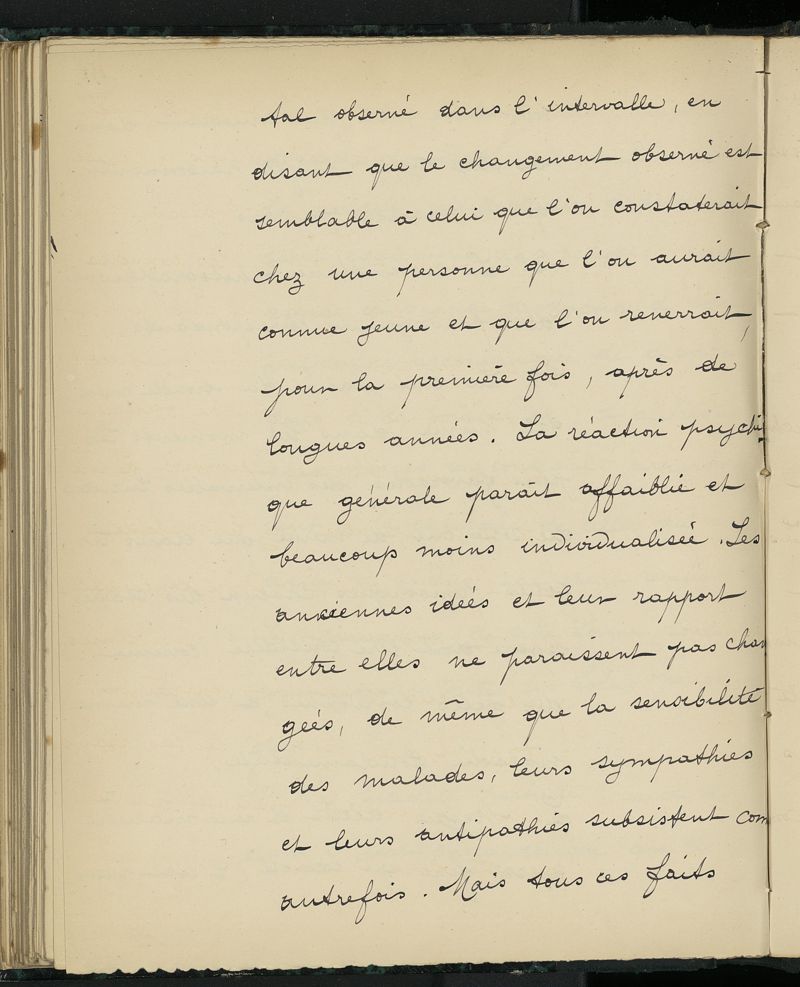 tal observé dans l'intervalle, en
disant que le changement observé est
semblable à celui que l'on constaterait
chez une personne que l'on aurait
connue jeune et que l'on reverrait,
pour la première fois, après de
longues années. La réaction psychi-
que générale parait affaiblie et
beaucoup moins individualisée. Les
anciennes idées et leur rapport
entre elles ne paraissent pas chan
gées, de même que la sensibilité
des malades, leurs sympathies
et leurs antipathies subsistent com
autrefois. Mais tous ces faits